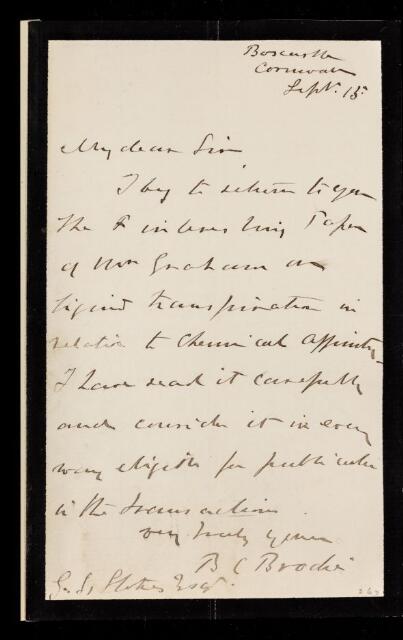 Boscastle
Cornwall
Sept. 15.
My dear Sir
I beg to return to you
the interesting Paper
of Mr Graham on
liquid transpiration in
relation to Chemical Affinity
I have read it carefully
and consider it in every
way eligible for publication
in the transactions
very truly yours
B C Brodie
G. G. Stokes Esqr.